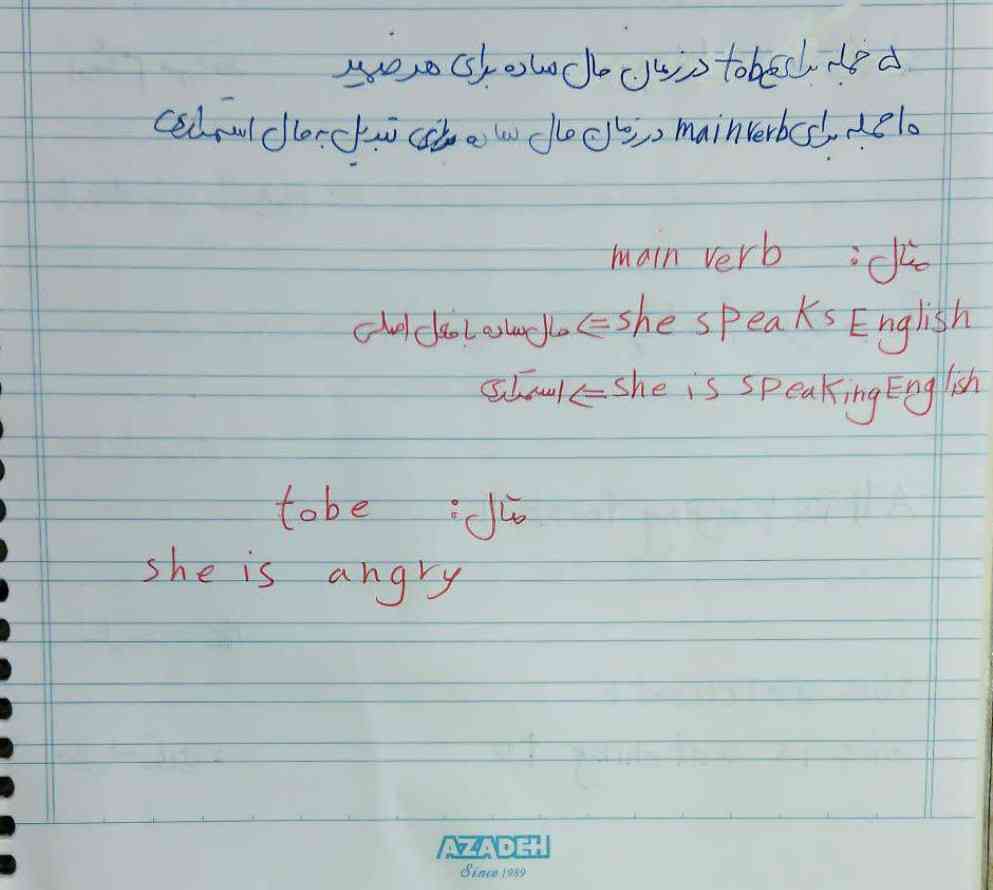 ۵ جمله برای tobe در زمان حال ساده برای هر ضمیر
۱۰ جمله برای main verb در زمان حال ساده برای تبدیل به حال استمراری
مثال : main verb
she speaks English => حال ساده با فعل اصلی
she is speaking English => استمراری
مثال : tobe
she is angry
AZADEH
Since 1989